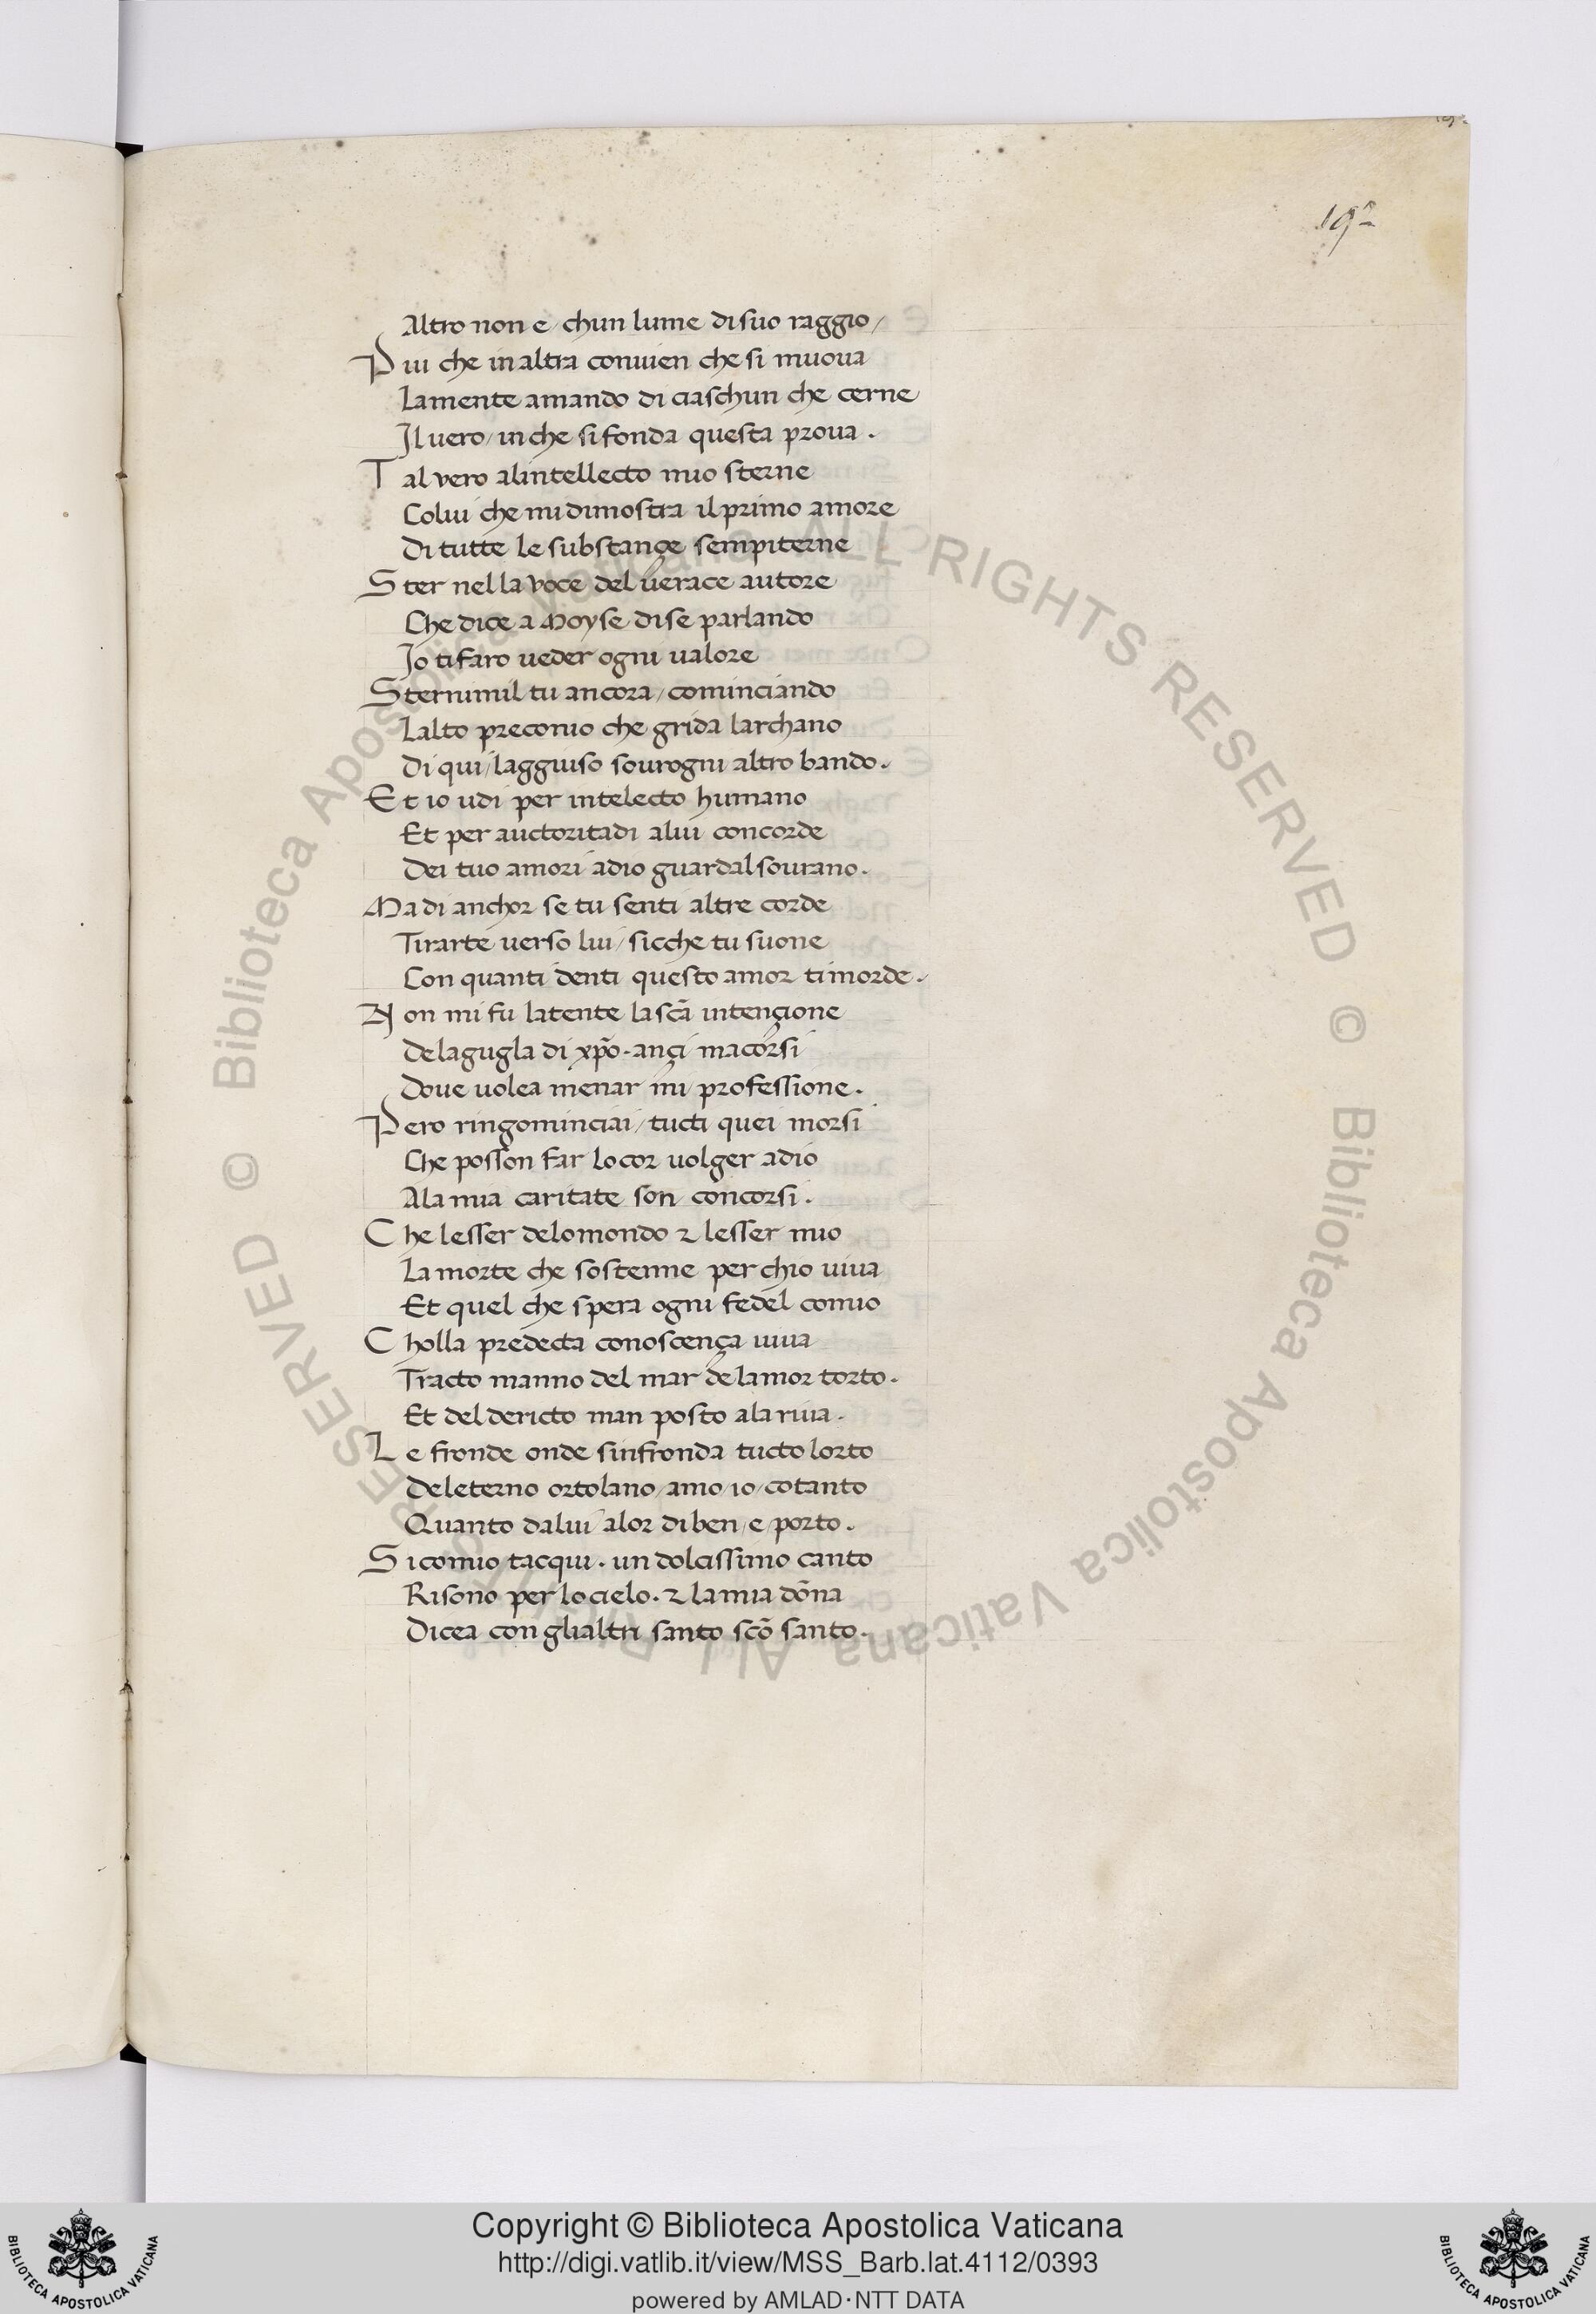 19ᵃ
Altro non e / chun lume disuo raggio /
Piu che in altra conuien che si muoua
Lamente amando di ciaschun che cerne
Il uero / in che sifonda questa proua .
Tal vero alintellecto mio sterne
Colui che midimostra ilprimo amore
Di tutte le substançe sempiterne
Ster nella voce del verace autore
Che dice a Moyse dise parlando
Io tifaro ueder ogni ualore
Sternimil tu ancora / cominciando
Lalto preconio che grida larchano
Di qui / laggiuiso sourogni altro bando .
Et io udi per intelecto humano
Et per auctoritadi alui concorde
Dei tuo amori adio guardalsourano .
Ma di anchor se tu senti altre corde
Tirarte uerso lui / sicche tu suone
Con quanti denti questo amor timorde .
Non mi fu latente la scā intençione
Delagugla di xp̄o . ançi macorsi
Doue uolea menar mi professione .
Pero ringominciai / tucti quei morsi
Che posson far locor uolger adio
Ala mia caritate son concorsi .
Che lesser delomondo ⁊ lesser mio
La morte che sostenne per chio uiua
Et quel che spera ogni fedel comio
Cholla predecta conoscença uiua
Tracto manno del mar delamor torto .
Et del dericto man posto ala riua .
Le fronde onde sinfronda tucto lorto
Deleterno ortolano / amo / io / cotanto
Quanto dalui alor diben / e / porto .
Sicomio tacqui . un dolcissimo canto
Risono per lo cielo . ⁊ la mia dōna
Dicea con glialtri santo scō santo .
© Biblioteca Apostolica Vaticana ALL RIGHTS RESERVED © Biblioteca Apostolica Vaticana ALL RIGHTS RESERVED
Copyright © Biblioteca Apostolica Vaticana
http://digi.vatlib.it/view/MSS_Barb.lat.4112/0393
powered by AMLAD·NTT DATA
BIBLIOTECA APOSTOLICA VATICANA
BIBLIOTECA APOSTOLICA VATICANA